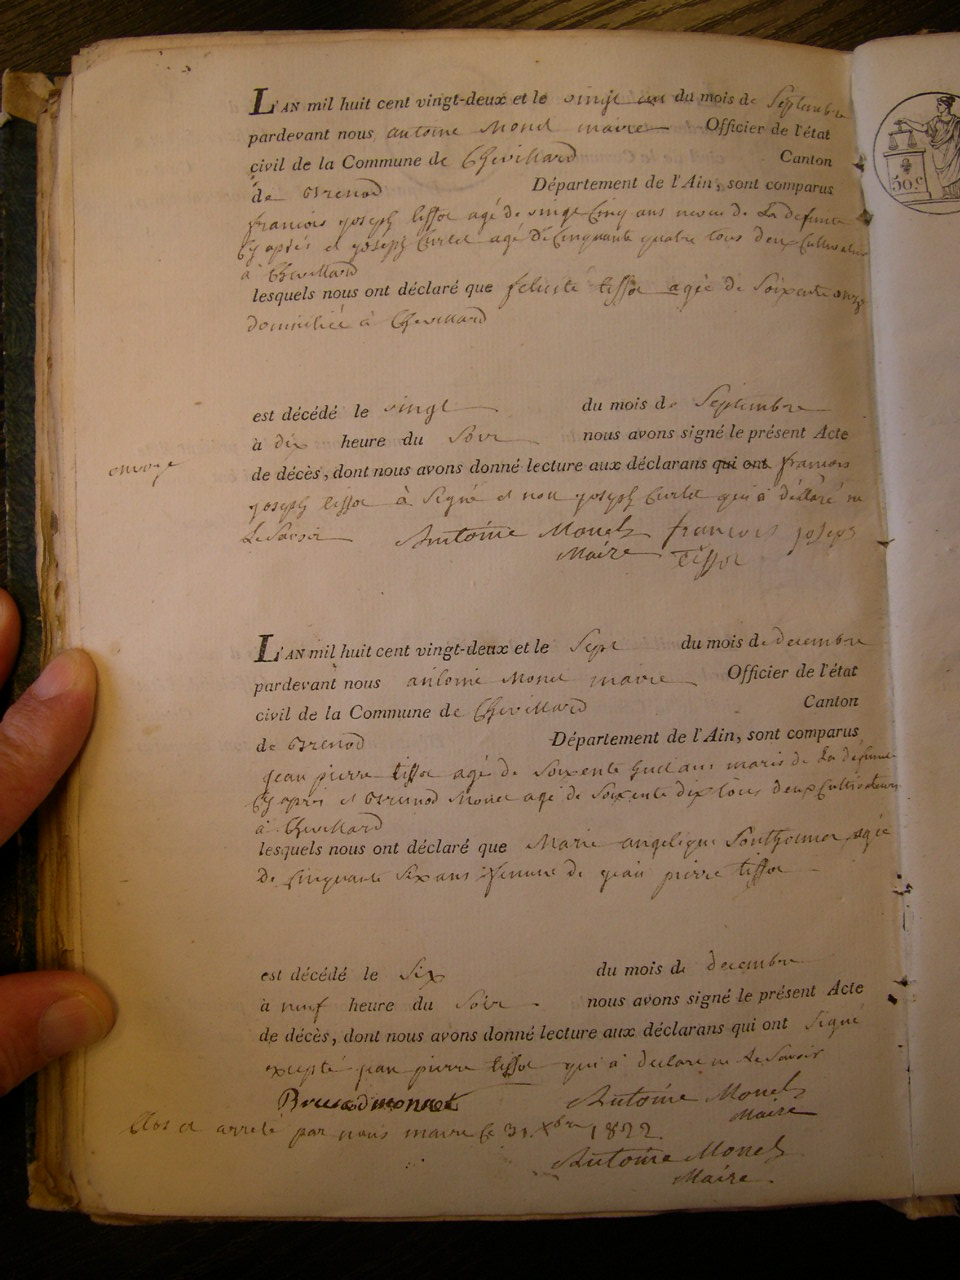 L'AN mil huit cent vingt-deux et le vingt un du mois de Septembre
pardevant nous antoine Monet maire Officier de l'état
civil de la Commune de Chevillard Canton
de Brenod Département de l'Ain, sont comparus
françois joseph tissot agé de vingt Cinq ans neveu de La defunte
Cy après et joseph Curlet agé de Cinquante quatre tous deux Cultivateurs
à Chevillard
lesquels nous ont déclaré que felicité tissot agée de Soixente onze
domiciliée à Chevillard
est décédé le vingt du mois de Septembre
à dix heure du Soir nous avons signé le présent Acte
envoyé
de décès, dont nous avons donné lecture aux déclarans qui ont françois
joseph tissot à Signé et non joseph Curlet qui à déclaré ne
Le Savoir Antoine Monet françois joseph
Maire tissot
L'AN mil huit cent vingt-deux et le Sept du mois de decembre
pardevant nous antoine Monet maire Officier de l'état
civil de la Commune de Chevillard Canton
de Brenod Département de l'Ain, sont comparus
jean pierre tissot agé de Soixente huit ans maris de La défunte
Cy après et Monet agé de Soixente dix tous deux Cultivateurs
à Chevillard
lesquels nous ont déclaré que Marie angelique agée
de Cinquante Six ans femme de jean pierre tissot
est décédé le Six du mois de decembre
à neuf heure du Soir nous avons signé le présent Acte
de décès, dont nous avons donné lecture aux déclarans qui ont Signé
excepté jean pierre tissot qui à declaré ne Le Savoir
Antoine Monet
Maire
Clos et arrêté par nous maire le 31 Xbre 1822
Antoine Monet
Maire
50c